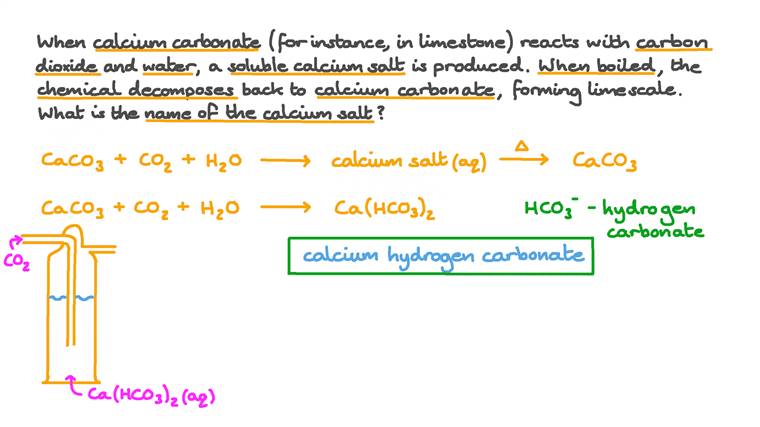 When calcium carbonate (for instance, in limestone) reacts with carbon
dioxide and water, a soluble calcium salt is produced. When boiled, the
chemical decomposes back to calcium carbonate, forming limescale.
What is the name of the calcium salt?
CaCO₃ + CO₂ + H₂O ⟶ calcium salt (aq) —Δ→ CaCO₃
CaCO₃ + CO₂ + H₂O ⟶ Ca(HCO₃)₂
HCO₃⁻ – hydrogen
carbonate
calcium hydrogen carbonate
CO₂
Ca(HCO₃)₂ (aq)